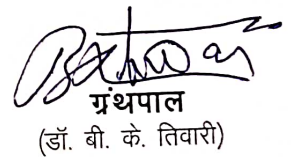 ग्रंथपाल
(डॉ. बी. के. तिवारी)